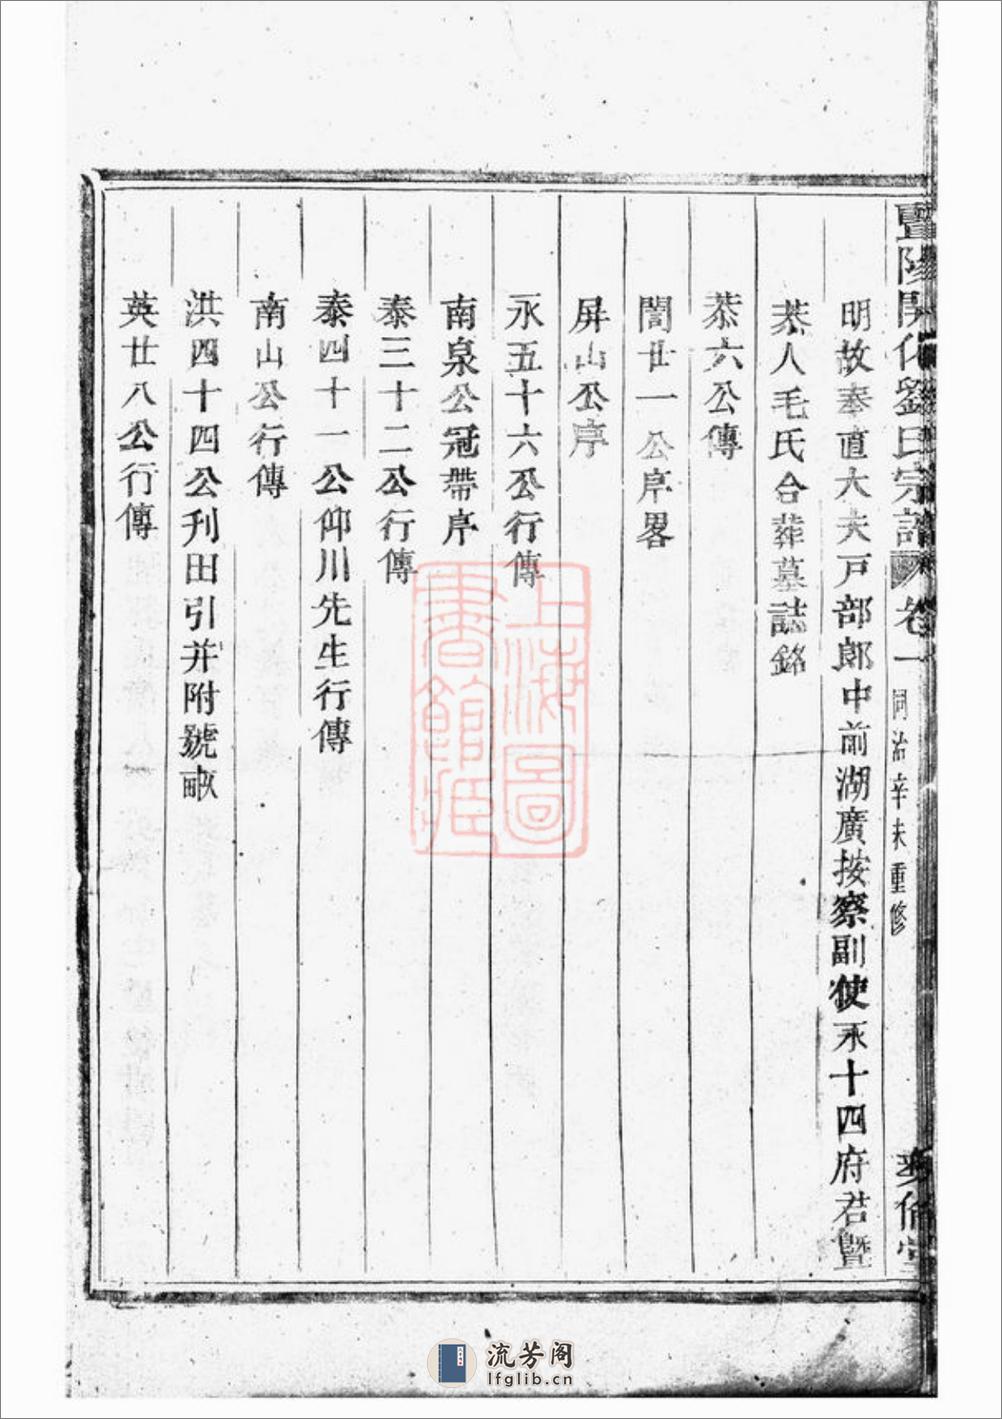 暨陽開化劉氏宗譜 卷一 同治辛未重修
明故奉直大夫戸部郞中前湖廣按察副使永十四府君暨
恭人毛氏合葬墓誌銘
恭六公傳
誾廿一公序畧
屏山公序
永五十六公行傳
南泉公冠帶序
泰三十二公行傳
泰四十一公仰川先生行傳
南山公行傳
洪四十四公刋田引并附號畝
英廿八公行傳
上海圖書館藏
流芳阁
lfglib.cn